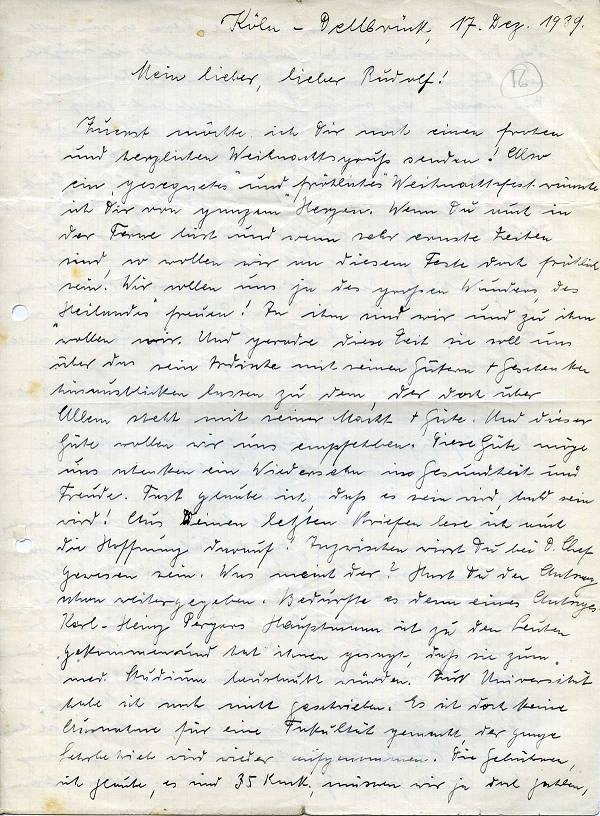 Köln - Dellbrück, 17. Dez. 1939.
Mein lieber, lieber Rudolf!
Zuerst möchte ich Dir noch einen frohen
und herzlichen Weihnachtsgruß senden! Also
ein "gesegnetes" und "fröhliches" Weihnachtsfest wünsche
ich Dir von ganzem Herzen. Wenn Du auch in
der Ferne bist und wenn sehr ernste Zeiten
sind, so wollen wir an diesem Feste doch fröhlich
sein! Wir wollen uns ja des großen Wunders, des
Heilandes freuen! In ihm sind wir und zu ihm
wollen wir. Und gerade diese Zeit sie soll uns
über das rein Irdische mit seinen Gütern + Geschenken
hinausblicken lassen zu dem, der doch über
Allem steht mit seiner Macht + Güte. Und dieser
Güte wollen wir uns empfehlen. Diese Güte möge
uns schenken ein Wiedersehn in Gesundheit und
Freude. Fast glaube ich, daß es sein wird, bald sein
wird! Aus Deinen letzten Briefen lese ich auch
die Hoffnung darauf! Inzwischen wirst Du bei D. Chef
gewesen sein. Was meint der? Hast Du den Antrag
schon weitergegeben. Bedürfte es denn eines Antrages
Karl-Heinz Pergers Hauptmann ist zu den Leuten
gekommen und hat ihnen gesagt, daß sie zum
med. Studium beurlaubt würden. Zur Universität
habe ich noch nicht geschrieben. Es ist doch keine
Ausnahme für eine Fakultät gemacht, der ganze
Lehrbetrieb wird wieder aufgenommen. Die Gebühren,
ich glaube, es sind 35 Rmk. müssen wir ja doch zahlen,